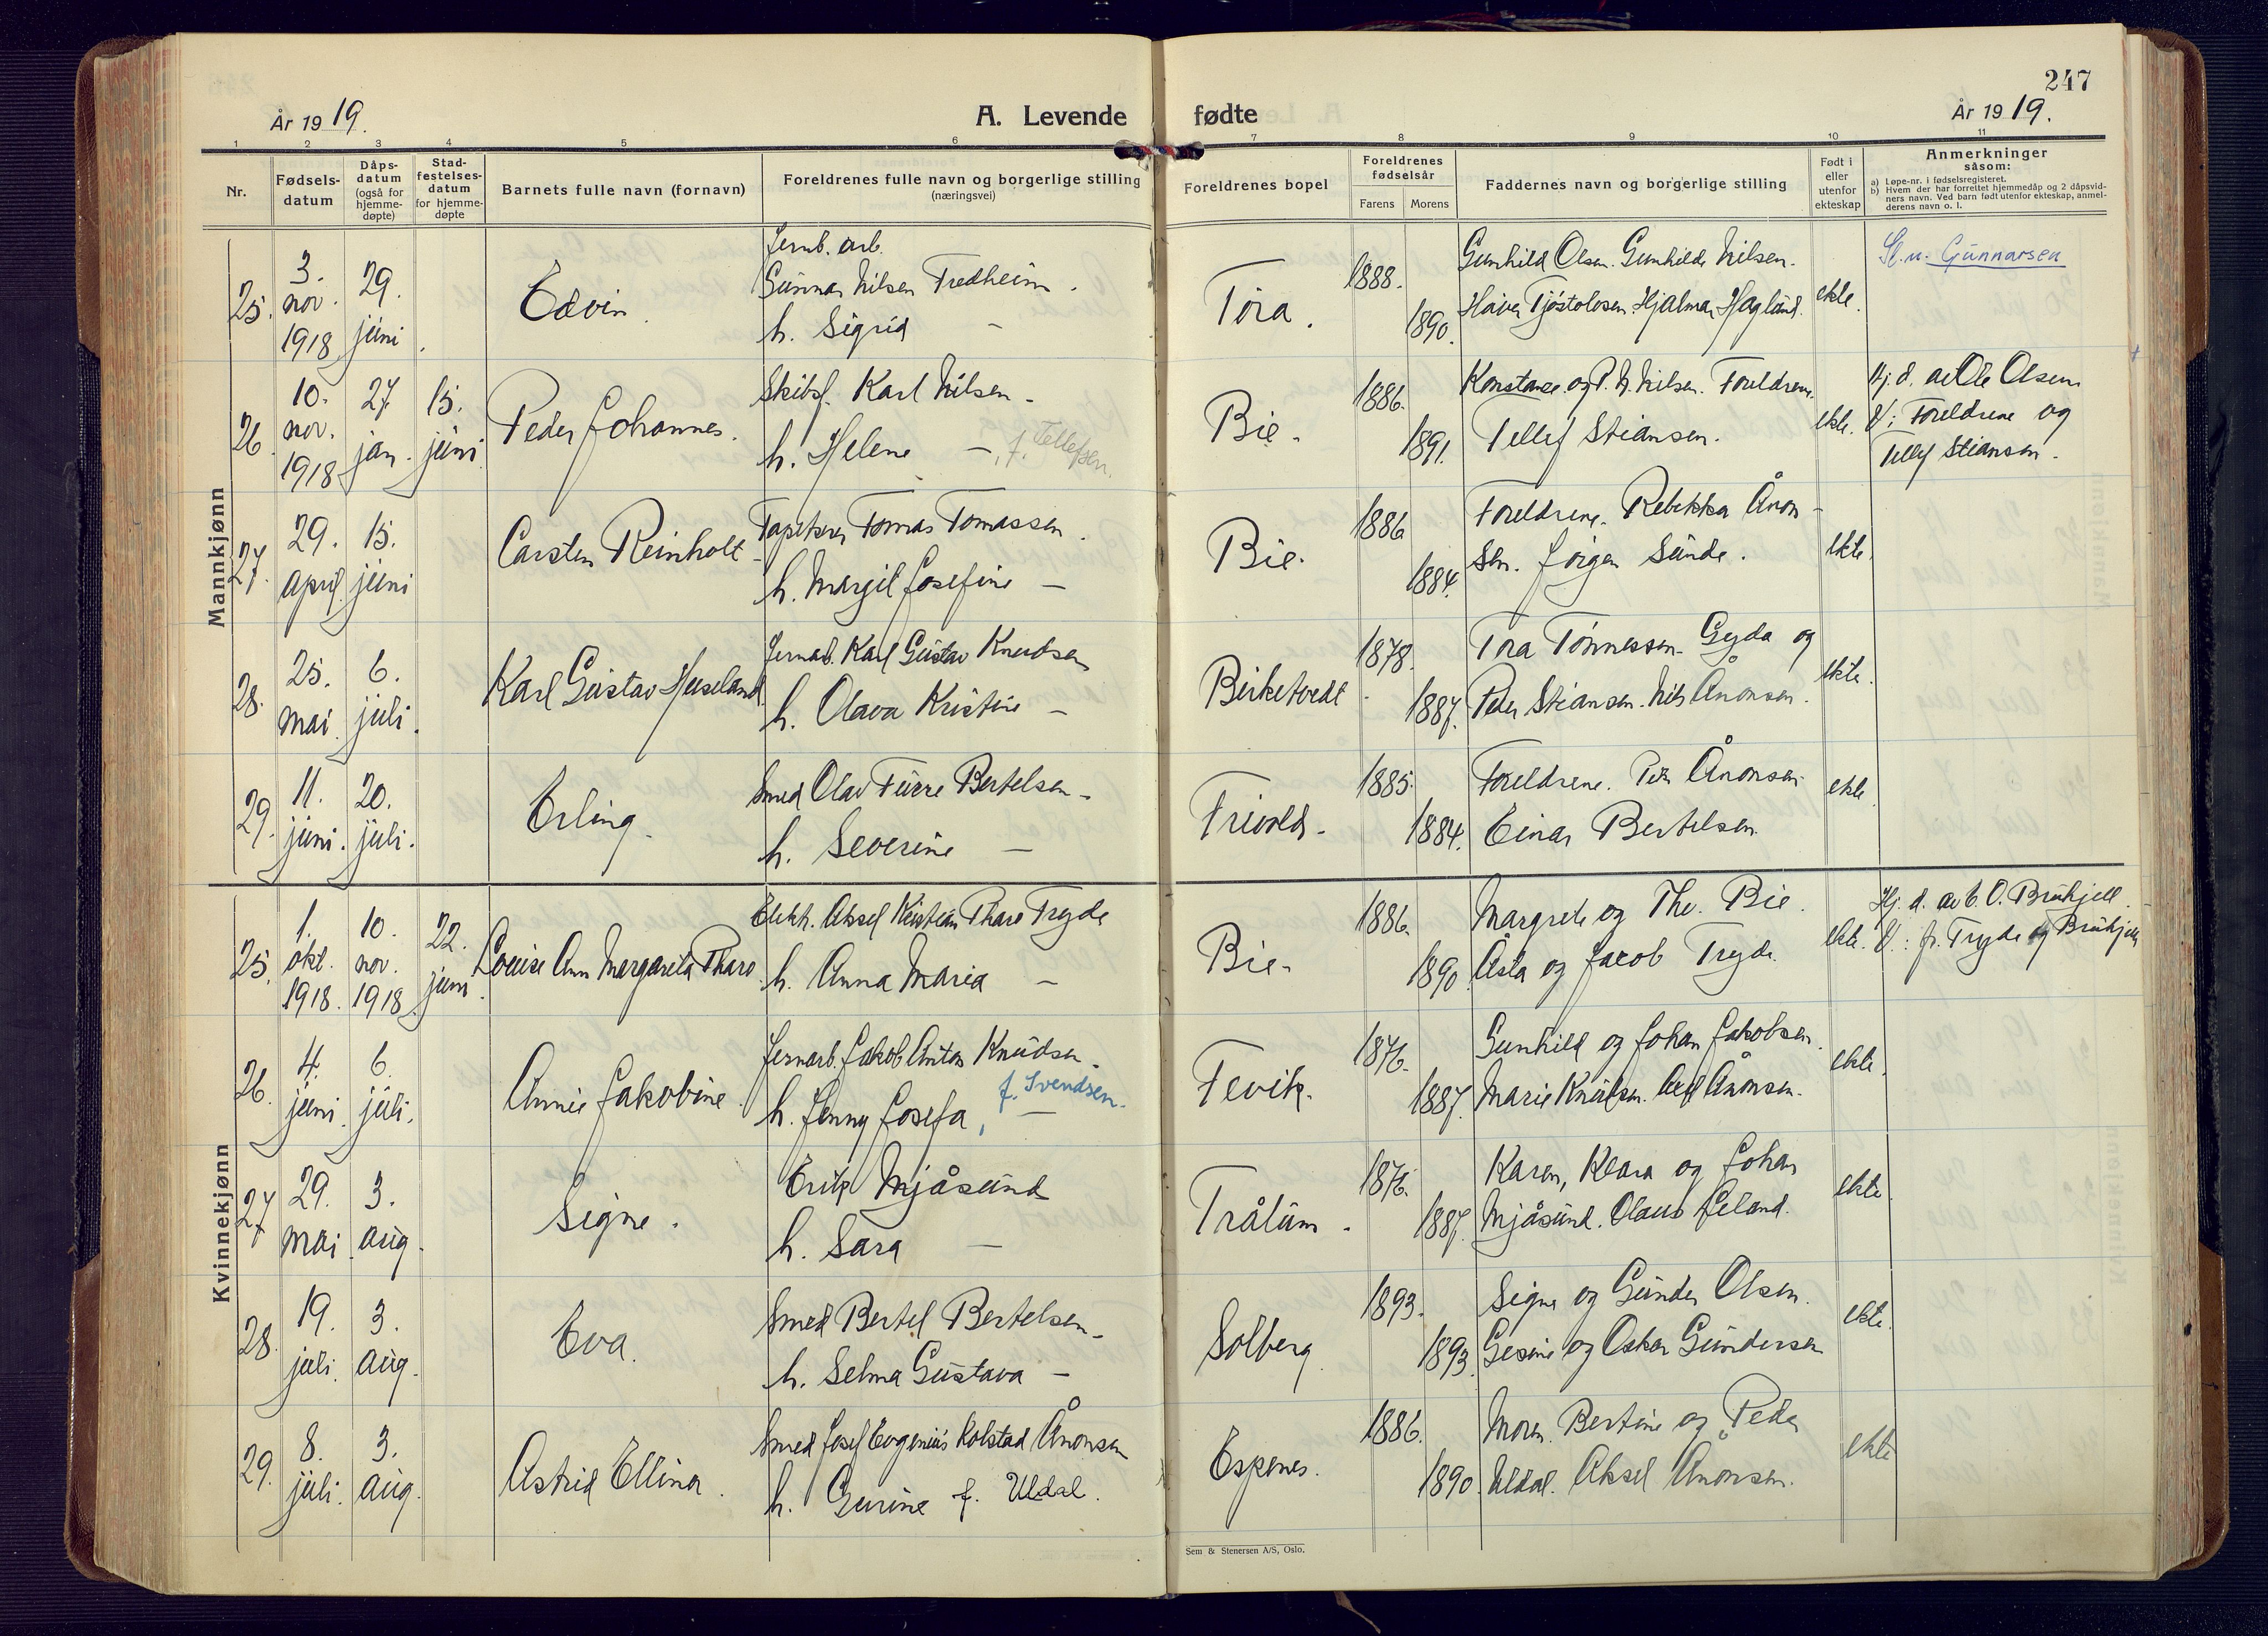 247
År 1919.
A. Levende fødte
År 1919.
1 2 3 4 5 6 7 8 9 10 11
Nr.
Fødsels-
datum
Dåps-
datum
(også for
hjemme-
døpte)
Stad-
festelses-
datum
for hjemme-
døpte
Barnets fulle navn (fornavn)
Foreldrenes fulle navn og borgerlige stilling
(næringsvei)
Foreldrenes bopel
Foreldrenes
fødselsår
Farens
Morens
Faddernes navn og borgerlige stilling
Født i
eller
utenfor
ekteskap
Anmerkninger
såsom:
a) Løpe-nr. i fødselsregisteret.
b) Hvem der har forrettet hjemmedåp og 2 dåpsvid-
ners navn. Ved barn født utenfor ekteskap, anmel-
derens navn o. l.
Mannkjønn
25.
3.
nov.
1918
29.
juni.
Edvin.
Jernb. arb.
Gunnar Nilsen Fredheim.
h. Sigrid —
Tora.
1888.
1890.
Gunhild Olsen. Gunhilda Nilsen.
Tjøstolvsen. Hjalmar Hoglund.
ekte.
Sl.n. Gunnarsen
26.
10.
nov.
1918
27.
jan.
15.
juni
Peder Johannes.
Skibsf. Karl Nilsen -
h. Helene —, f. Tellefsen.
Bie.
1886.
1891.
Konstanse og P. N. Nilsen. Foreldrene.
Tellef Stiansen.
ekte.
Hj. d. av Ole Olsen
V: Foreldrene og
Tellef Stiansen.
27.
29.
april
15.
juni
Carsten Reinholt -
Tapetserer Tomas Tomassen.
h. Margit Josefine —
Bie.
1886
1884.
Foreldrene. Rebekka Ånon-
sen. Jørgen Sunde.
ekte.
28.
25.
mai.
6.
juli.
Karl Gustav Huseland
Jernarb. Karl Gustav Knudsen
h. Olava Kristine —
Birketvedt.
1878.
1887.
Tora Tønnessen. Gyda og
Peder Stiansen. Nils Ånonsen.
ekte.
29.
11.
juni.
20.
juli.
Erling.
Smed Olav Furre Bertelsen -
h. Severine —
Frivold.
1885.
1884.
Foreldrene. Peter Ånonsen
Einar Bertelsen.
ekte.
Kvinnekjønn
25.
1.
okt.
1918.
10.
nov.
1918.
22.
juni.
Louise Ann Margareta Tharo.
Elekt. Aksel Kristian Tharo Tryde
h. Anna Maria —
Bie.
1886.
1890.
Margrete og The. Bie.
Åsta og Jacob Tryde.
ekte.
Hj. d. av C. O. Bruhjell.
V: fr. Tryde og Bruhjell
26.
4.
juni.
6.
juli.
Annie Jakobine.
Jernarb. Jakob Anton Knudsen.
h. Jenny Josefa, — f. Svendsen.
Fevik.
1876.
1887.
Gunhild og Johan Jakobsen.
Marie Knudsen. Ånonsen.
ekte.
27
29.
mai.
3.
aug.
Signe.
Erik Mjåsund
h. Sara —
Trålum.
1876.
1887.
Karen, Klara og Johan
Mjåsund. Olaus Leland.
ekte.
28.
19.
juli.
3.
aug.
Eva.
Smed Bertel Bertelsen -
h. Selma Gustava —
Solberg.
1893.
1893.
Signe og Gunder Olsen.
Gesine og Oskar Gundersen
ekte.
29.
8.
juli.
3.
aug.
Astrid Ellina.
Smed Josef Eugenius Kolstad Ånonsen
h. Gurine f. Uldal.
Espenes.
1886.
1890.
Moren. Bertine og Peder
Uldal. Aksel Ånonsen.
ekte
Sem & Stenersen A/S, Oslo.